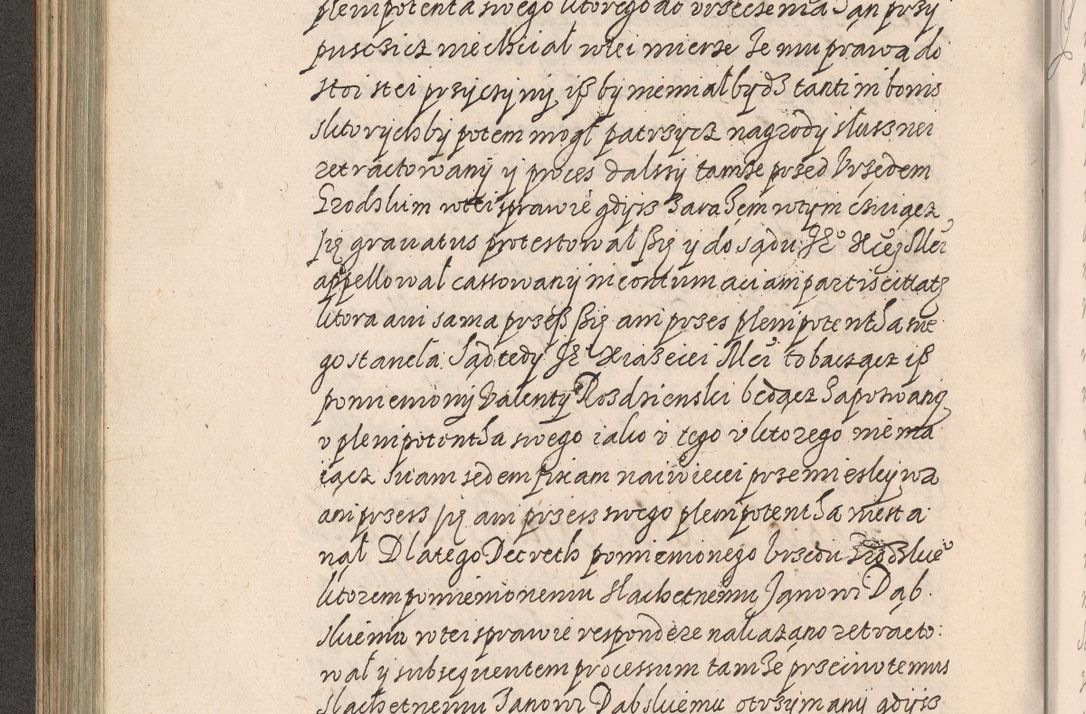 plenipotenta swego ktorego do vrzeczenia Jan przy
pusczicz niechciał wtei mierze że mu prawa do
stoi stei przyczyny iß by niemiał bydz tanti in bonis
sktorychby potem mogł patrzycz nagrody slusznei
retractowany y proces dalssy tamże przed Vrzędem
Grodzkim wtei sprawie gdyis zarazem wtym czuiącz
się grauatus protestował ßię y do sądu Je° Xcęi Mci
appellował cassowany in contumaciam partis citatę
ktora ani sama przeß ßię ani przes plenipotentha swe
go staneła. Sąd tedy Je° Xiazecei Mci to baczącz iß
pomieniony Valenty Rosdzienski będącz zapozwany
v plenipotentha swego iako v tego v ktorego niema
iącz suam sedem fixam naiwiecei przemieskywa
ani przess się ani przess swego plenipotentha niesta
nął Dlatego Decreth pomienionego Vrzedu Grodzkie°
ktorem pomienionemu slachetnemu Janowi Dąb
skiemu wtei sprawie respondere nakazano retracto:
wał y subsequentem processum tamże przeciwo temus
slachetnemu Janowi Dąbskiemu otrzymany gdyis